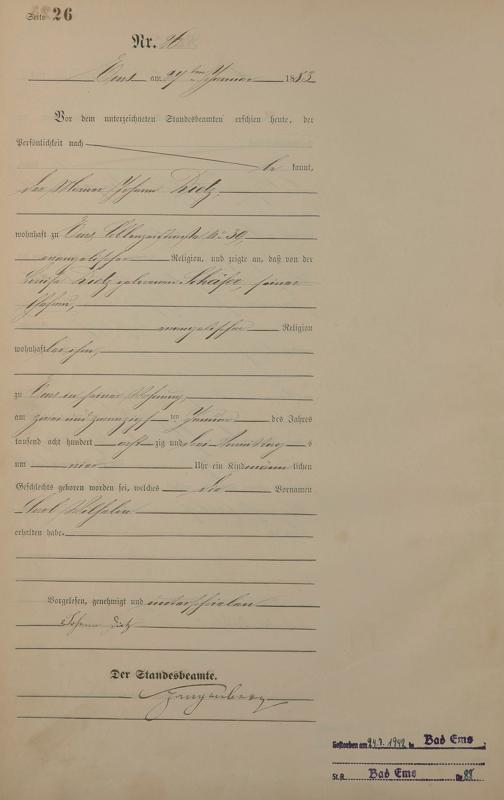 Seite 26
Nr.
Ems am 27ten Januar 1883
Vor dem unterzeichneten Standesbeamten erschien heute, der
Persönlichkeit nach
be kannt,
der Maurer Johann Dietz,
wohnhaft zu Ems, No 30,
evangelischer Religion, und zeigte an, daß von der
Louise Dietz geborenen Schäfer, seiner
Ehefrau,
evangelischer Religion
wohnhaft bei ihm,
zu Ems in seiner Wohnung,
am zwei und zwanzigsten Januar des Jahres
tausend acht hundert achtzig und drei
um Uhr ein Kind männlichen
Geschlechts geboren worden sei, welches die Vornamen
Carl Wilhelm
erhalten habe.
Vorgelesen, genehmigt und unterschrieben
Johann Dietz
Der Standesbeamte.
Gestorben am 24.7.1942 in Bad Ems
St. A. Bad Ems Nr 88